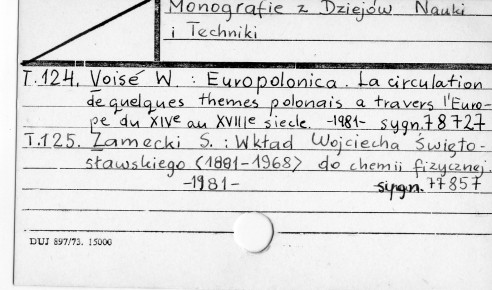 Monografie z Dziejów Nauki
i Techniki
T.124. Voisé W. : Europolonica. La circulation
de quelques themes polonais a travers l'Euro-
pe du XIVe au XVIIIe siecle. -1981- sygn.78727
T.125. Zamecki S. : Wkład Wojciecha Święto-
sławskiego <1881-1968> do chemii fizycznej.
-1981- sygn.77857
DUJ 897/73. 15000